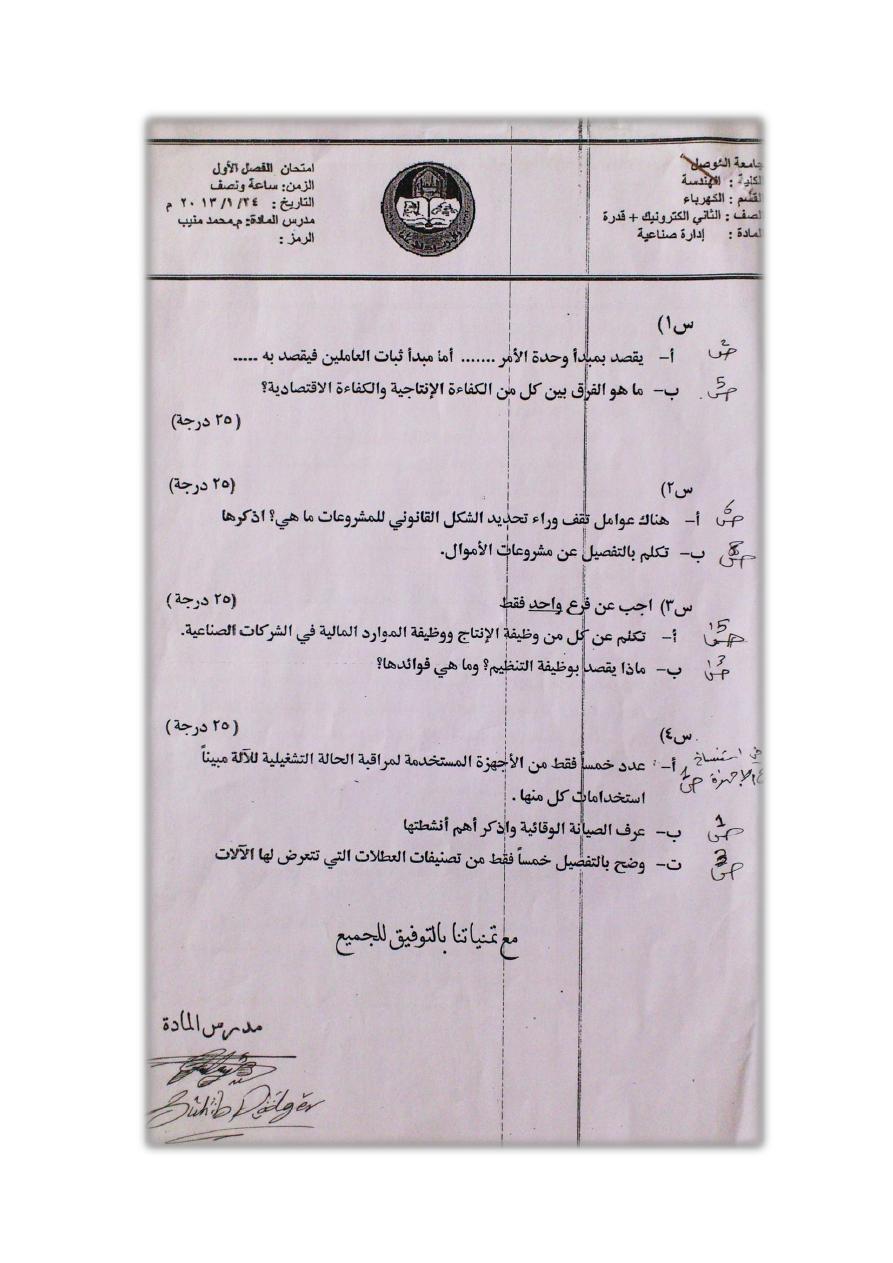 جامعة الموصل
الكلية : الهندسة
القسم : الكهرباء
الصف : الثاني الكترونيك + قدرة
المادة : إدارة صناعية
امتحان الفصل الأول
الزمن: ساعة ونصف
التاريخ : ٢٠١٣/١/٢٤ م
مدرس المادة: م.محمد منيب
الرمز :
س١)
أ- يقصد بمبدأ وحدة الأمر ....... أما مبدأ ثبات العاملين فيقصد به -----
ص2
ب- ما هو الفرق بين كل من الكفاءة الإنتاجية والكفاءة الاقتصادية؟
ص5
(٢٥ درجة)
س٢) (٢٥ درجة)
أ- هناك عوامل تقف وراء تحديد الشكل القانوني للمشروعات ما هي؟ اذكرها
ص6
ب- تكلم بالتفصيل عن مشروعات الأموال.
ص
س٣) اجب عن فرع واحد فقط (٢٥ درجة)
أ- تكلم عن كل من وظيفة الإنتاج ووظيفة الموارد المالية في الشركات الصناعية.
ص15
ب- ماذا يقصد بوظيفة التنظيم؟ وما هي فوائدها؟
ص13
س٤) (٢٥ درجة)
أ- عدد خمساً فقط من الأجهزة المستخدمة لمراقبة الحالة التشغيلية للآلة مبيناً
استخدامات كل منها .
استنساخ
الاجهزة ص1
ب- عرف الصيانة الوقائية واذكر أهم أنشطتها
ص1
ت- وضح بالتفصيل خمساً فقط من تصنيفات العطلات التي تتعرض لها الآلات
ص3
مع تمنياتنا بالتوفيق للجميع
مدرس المادة
Suhib